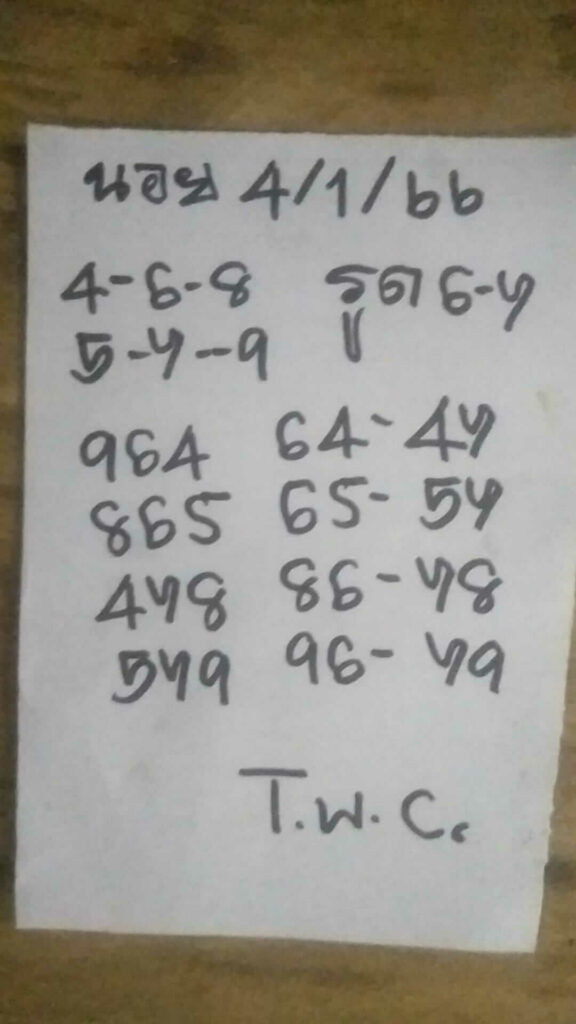 นอย 4/1/66
4-6-8 รูด 6-7
5-7-9
964 64-47
865 65-57
478 86-78
579 96-79
T.W.C.